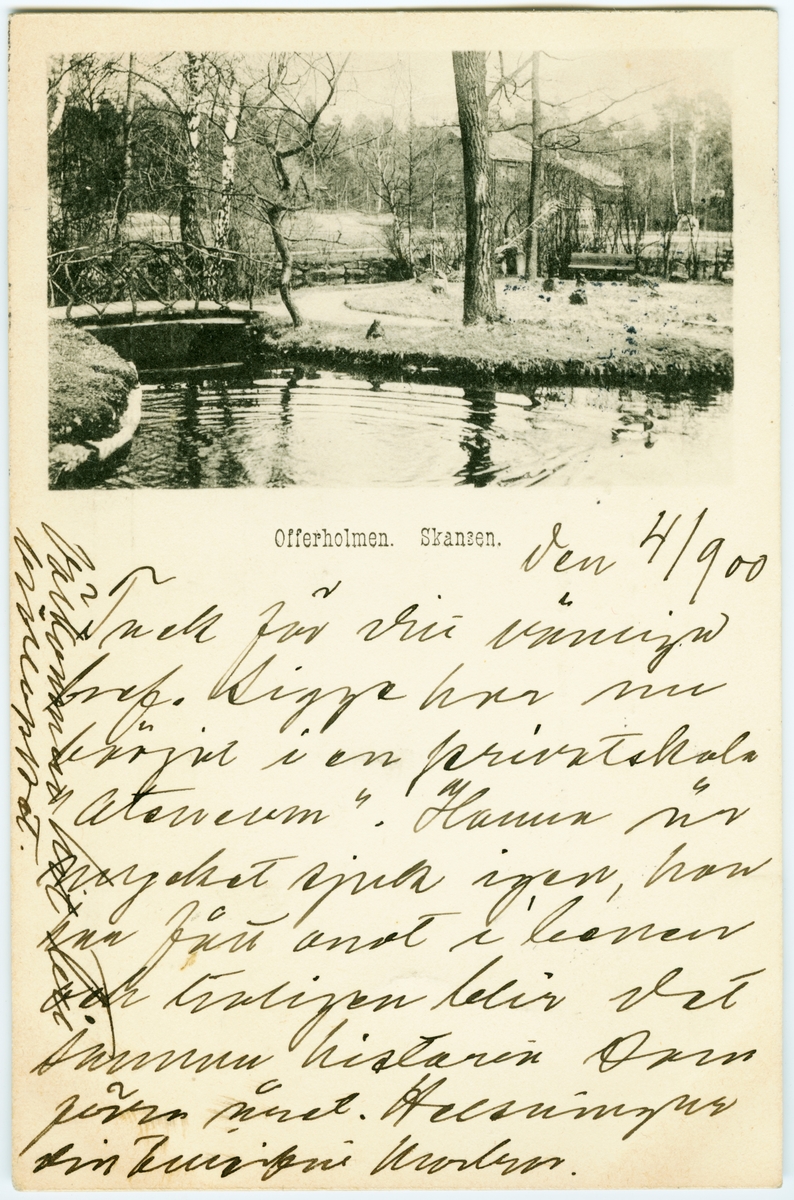 Offerholmen. Skansen.
den 4/9 00
Tack för ditt vänliga
bref. Sigge har nu
börjat i en privatskola
"Ateneum". Hanna är
mycket sjuk igen, hon
har fått ondt i benen
och troligen blir det
samma historia som
förra året. Helsningar
din moder.